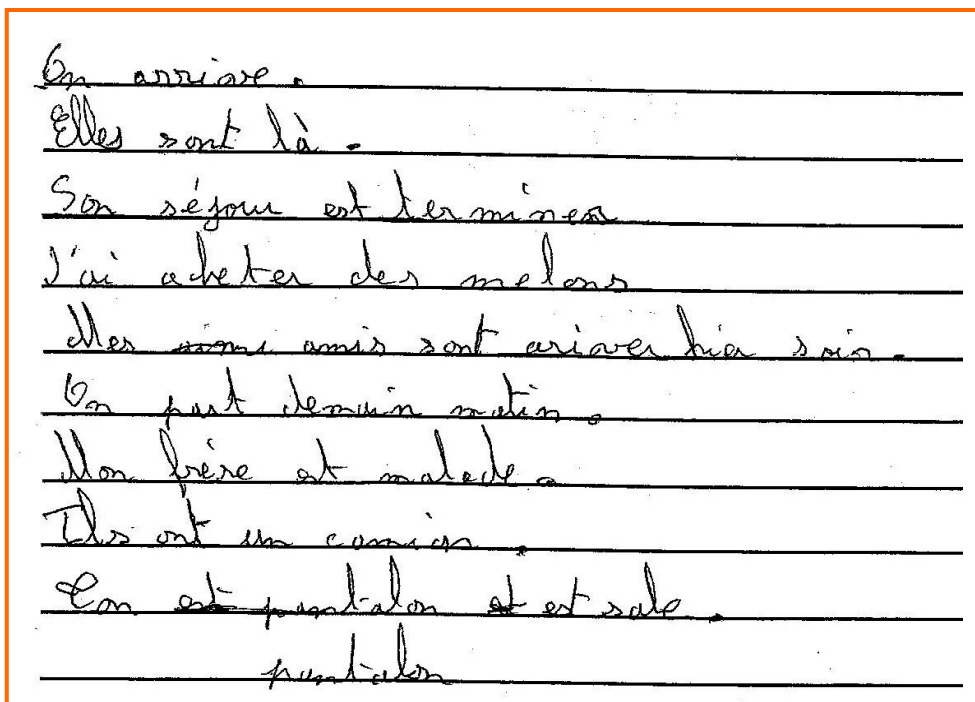 On arrive.
Elles sont là.
Son séjour est terminer
J'ai acheter des melons
Mes amis sont ariver hier soir.
On part demain matin.
Mon frère est malade.
Ils ont un camion.
Ton pantalon est sale.
pantalon